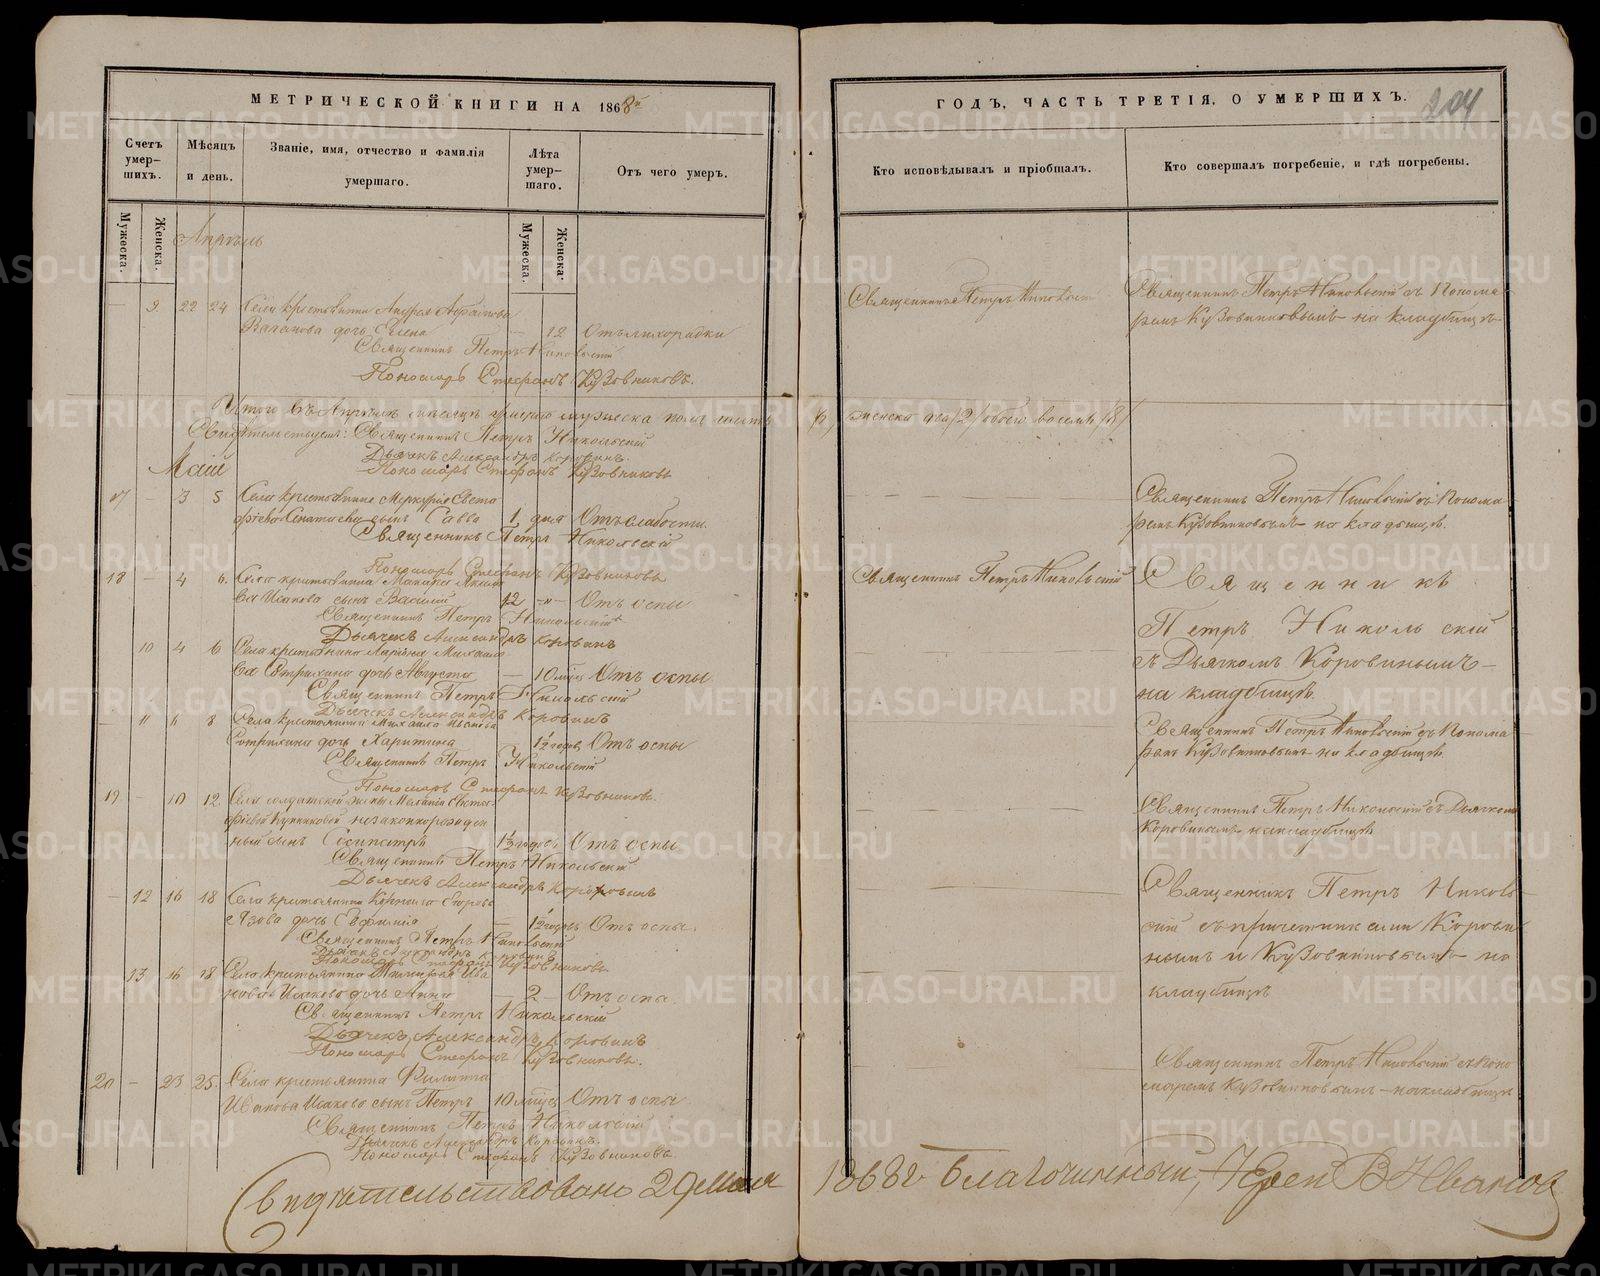 МЕТРИЧЕСКОЙ КНИГИ НА 1868й
Счетъ умер-
шихъ.
Мѣсяцъ
и день.
Званіе, имя, отчество и фамилія
умершаго.
Лѣта
умер-
шаго.
Отъ чего умеръ.
Мужеска.
Женска.
Мужеска
Женска.
Апрѣль
9 22 24 Села крестьянина Андрея
дочь Елена — 12 Отъ лихорадки
Священникъ Петръ Никольскій
Пономарь Стефанъ Кузовниковъ.
Итого въ Апрѣлѣ мѣсяцѣ умерло мужеска пола шесть
Свидѣтельствуемъ: Священникъ Петръ Никольскій
Дьячекъ Александръ Коровинъ.
Пономарь Стефанъ Кузовниковъ
Май
17 — 3 5 Села крестьянина Меркурія
сынъ Савва 1 дня Отъ слабости.
Священникъ Петръ Никольскій
Пономарь Стефанъ Кузовниковъ
18 — 4 6. Села крестьянина
Исакова сынъ Василій 12 Отъ оспы
Священникъ Петръ Никольскій
Дьячекъ Александръ Коровинъ
10 4 6 Села крестьянина
дочь Августа — 10 мѣсяц Отъ оспы
Священникъ Петръ Никольскій
Дьячекъ Александръ Коровинъ
11 6 8 Села крестьянина Михаила
дочь Харитина 1½ годов Отъ оспы
Священникъ Петръ Никольскій
Пономарь Стефанъ Кузовниковъ.
19 — 10 12. Села солдатской жены
незаконнорожден
ный сынъ Сосипатръ 1½ годов Отъ оспы
Священникъ Петръ Никольскій
Дьячекъ Александръ Коровинъ
— 12 16 18 Села крестьянина Корнила Егорова
дочь Евфимія — 1½ годов Отъ оспы.
Священникъ Петръ Никольскій
Дьячекъ Александръ Коровинъ
Пономарь Стефанъ Кузовниковъ
13 16 18 Села крестьянина Ива
нова Исакова дочь Анна — 2 — Отъ оспы.
Священникъ Петръ Никольскій
Дьячекъ Александръ Коровинъ
Пономарь Стефанъ Кузовниковъ.
20 — 23 25. Села крестьянина Филиппа
Иванова Исакова сынъ Петръ 10 мѣсяц Отъ оспы
Священникъ Петръ Никольскій
Дьячекъ Александръ Коровинъ.
Пономарь Стефанъ Кузовниковъ.
Свидѣтельствовано 29 Мая
ГОДЪ, ЧАСТЬ ТРЕТІЯ, О УМЕРШИХЪ.
204
Кто исповѣдывалъ и пріобщалъ.
Кто совершалъ погребеніе, и гдѣ погребены.
Священникъ Петръ Никольскій
Священникъ Петръ Никольскій съ Понома
ремъ Кузовниковымъ на кладбищѣ
женска два /2/ обоего восемь /8/
Священникъ Петръ Никольскій съ Понома
ремъ Кузовниковымъ на кладбищѣ.
Священникъ Петръ Никольскій
Священникъ
Петръ Никольскій
съ Дьячкомъ Коровинымъ —
на кладбищѣ.
Священникъ Петръ Никольскій съ Понома
ремъ Кузовниковымъ на кладбищѣ
Священникъ Петръ Никольскій съ Дьячкомъ
Коровинымъ на кладбищѣ
Священникъ Петръ Николь
скій съ причетниками Корови
нымъ и Кузовниковымъ на
кладбищѣ
Священникъ Петръ Никольскій съ поно
маремъ Кузовниковымъ — на кладбищѣ
1868г Благочинный, Іерей В Ивановъ
METRIKI.GASO-URAL.RU